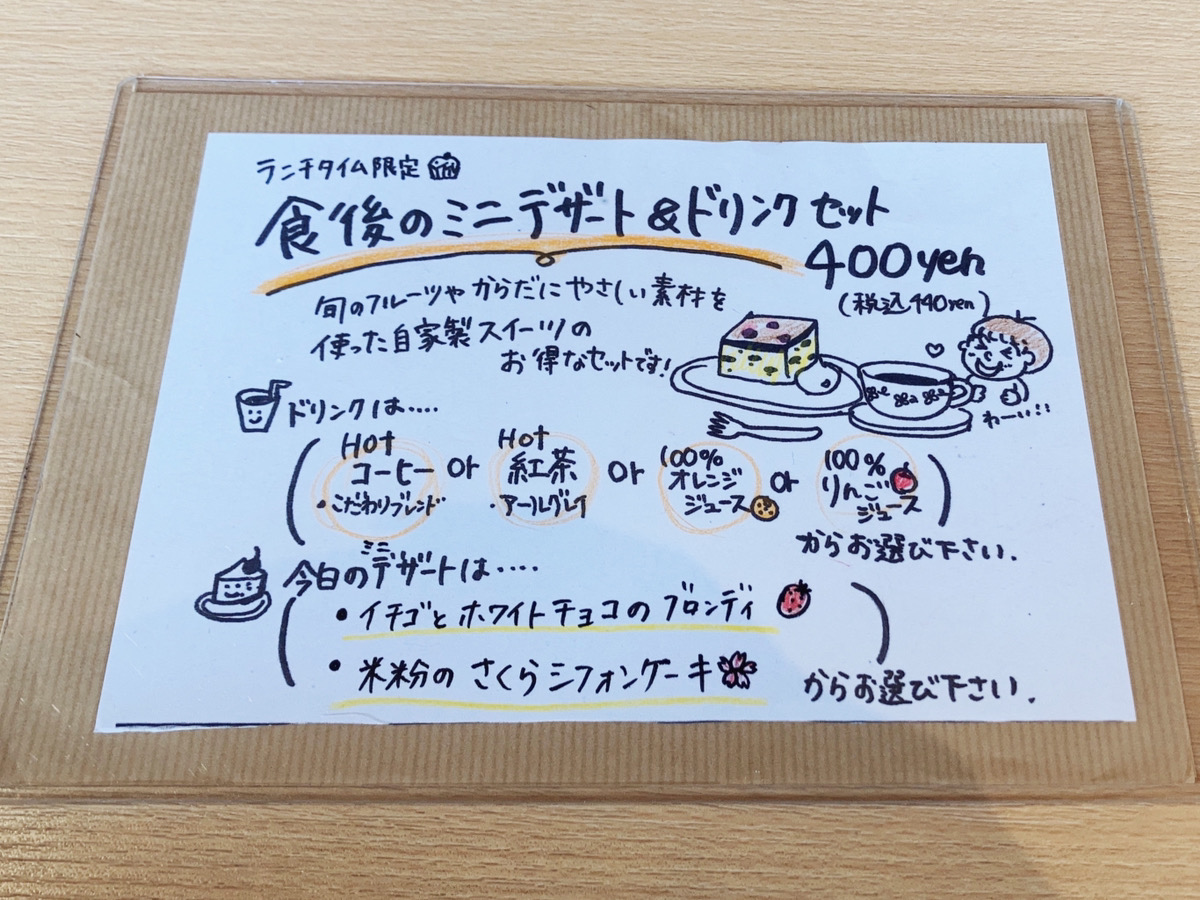 ランチタイム限定
食後のミニデザート&ドリンクセット
400yen
(税込440yen)
旬のフルーツやからだにやさしい素材を
使った自家製スイーツの
お得なセットです!
わーい!!
ドリンクは....
(Hot コーヒー ・こだわりブレンド or Hot 紅茶 ・アールグレイ or 100% オレンジジュース or 100% りんごジュース)
からお選び下さい.
今日のミニデザートは....
• イチゴとホワイトチョコのブロンディ
• 米粉のさくらシフォンケーキ
からお選び下さい.